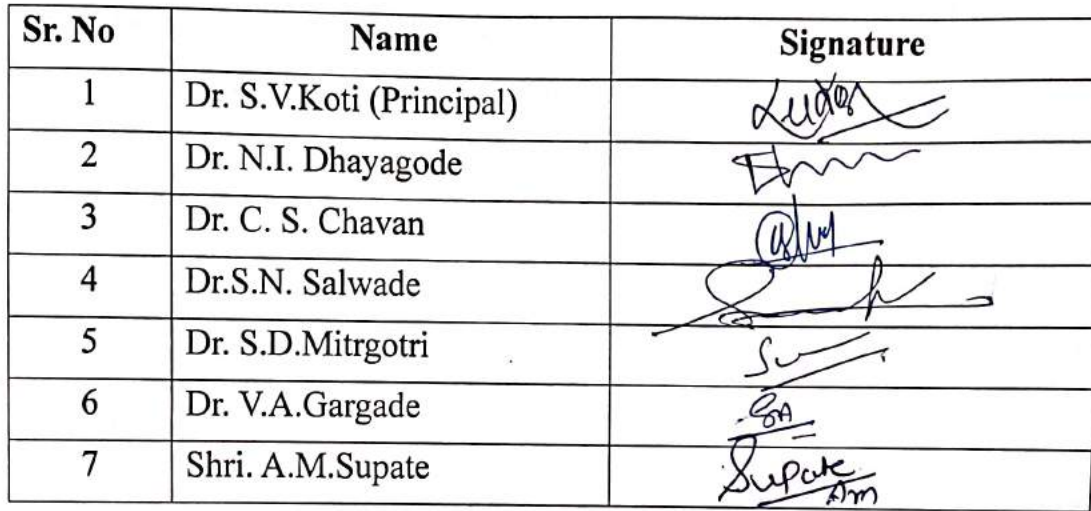 Sr. No Name Signature
1 Dr. S.V.Koti (Principal)
2 Dr. N.I. Dhayagode
3 Dr. C. S. Chavan
4 Dr.S.N. Salwade
5 Dr. S.D.Mitrgotri
6 Dr. V.A.Gargade
7 Shri. A.M.Supate Supate
Am